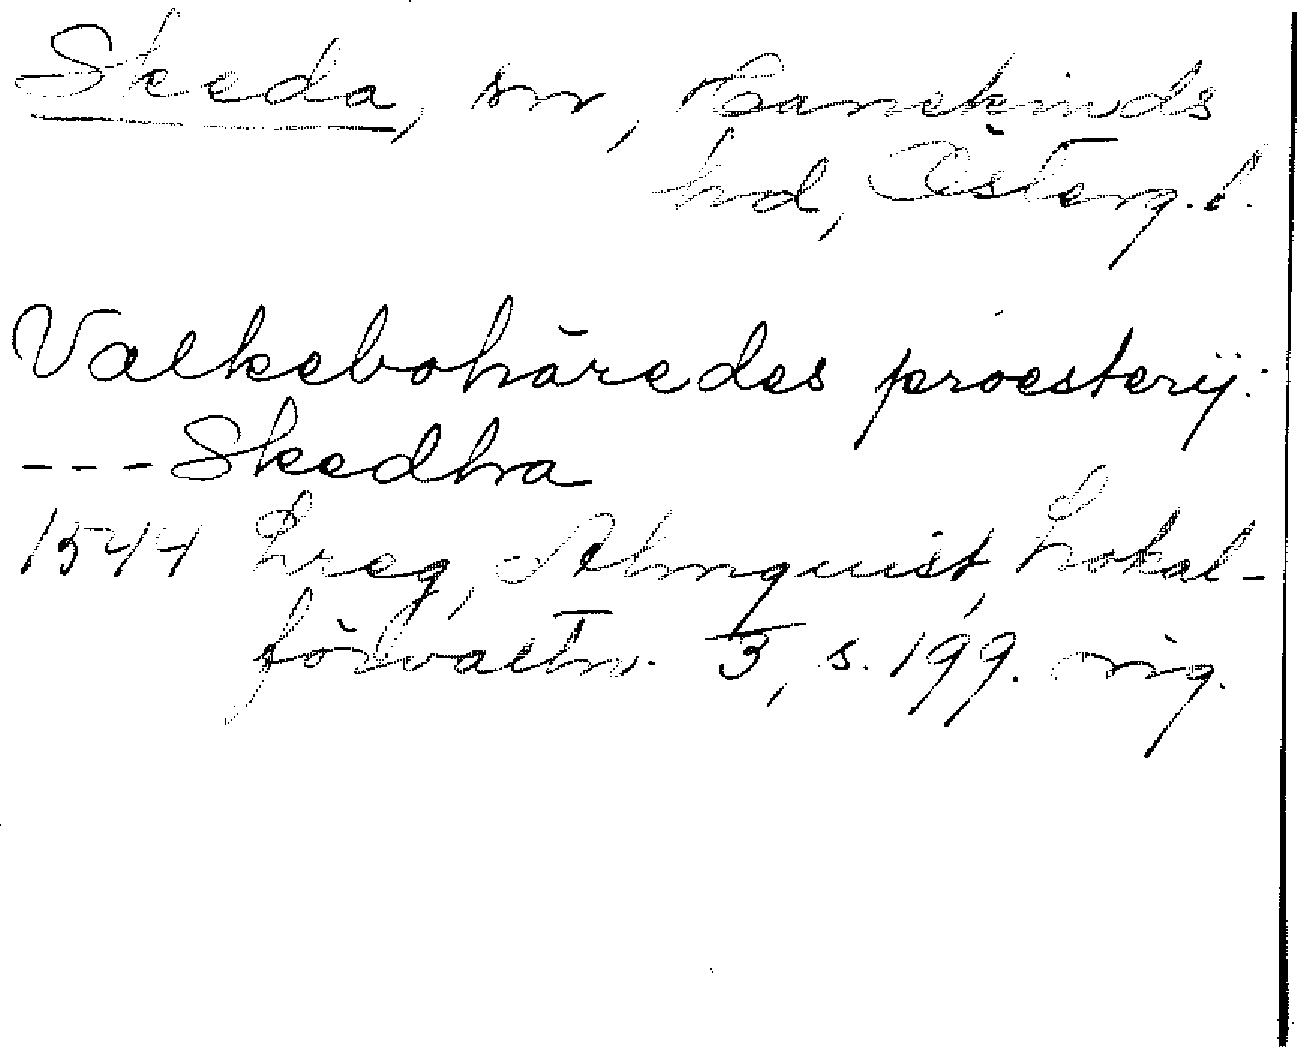 Skeda, sn, Hanekinds
hd, Österg. l.
Valkebohäredes proesterij:
---Skedha
1544 Lreg, Almquist, Lokal-
förvaltn. 3, s. 199. nig.